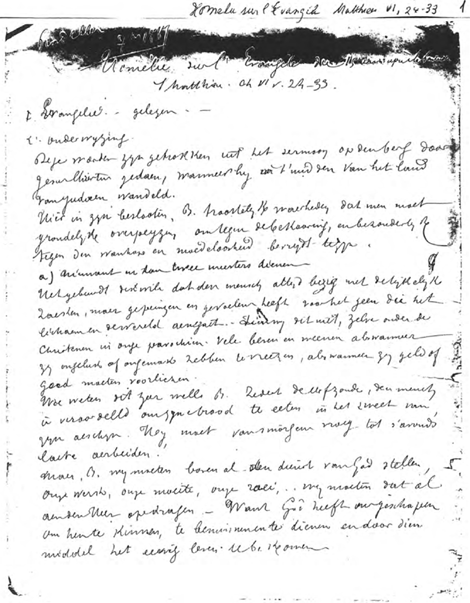 Homelie sur l'Evangile Matthieu VI, 24-33 1
Homelie sur l'Evangile du
S Matthieu. Ch VI v. 24-33.
1. Evangelie .. gelezen. -
2. onderwijzing.
Deze woorden zyn getrokken uit het sermoon op den berg door
gedaen, wanneer hy in 't midden van het land
van Judaen wandeld.
Hier in zyn besloten, B. troostelyke waerheden dat men moet
grondelyk overpeyzen om tegen de bekooring, en bezonderlyk
tegen den wanhoop en moedeloosheid bevryd te zyn.
a) Niemant en kan twee meesters dienen
Het gebeurdt dikwils dat den mensch altyd bezig met de tydelyke
zaeken, maer gepeizingen en gevoelens heeft voor het geen die het
lichaem en de wereld aengaet. .. dit niet, zelve onder de
Christenen in onze parochien. Vele beven en meenen als wanneer
zy ongeluk of ongemak hebben te vreezen, als wanneer zy geld of
goed moeten voorliezen.
Wy weten dit zeer wel B. Zedert de erfzonde, den mensch
is veroordeeld om zyn brood te eeten in het zweet van
zyn aeschyn. Hy moet van smorgens vroeg tot s'avonds
laete aerbeiden.
Maer, B. wy moeten boven al den dienst van God stellen,
onze werk, onze moeite, onze .. wy moeten dat al
aen den Heer opdragen - Want God heeft ons geschapen
om hem te kennen, te beminnen en te dienen en door dien
middel het eeuwig leven te bekomen